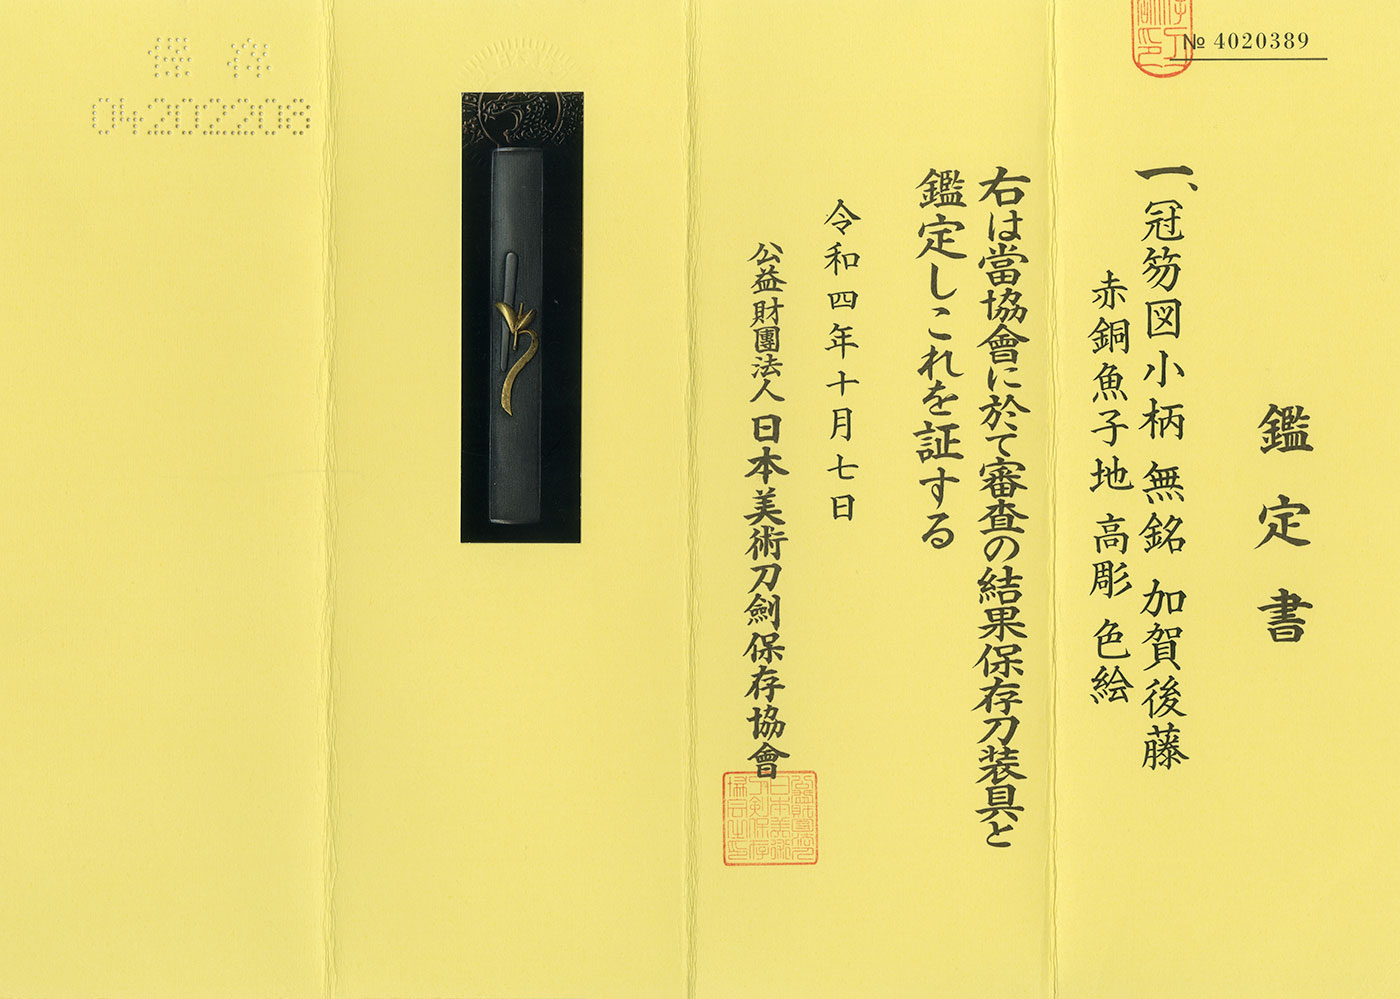 № 4020389
鑑定書
一、冠笏図小柄 無銘 加賀後藤
赤銅魚子地 高彫 色絵
右は當協會に於て審査の結果保存刀装具と
鑑定しこれを証する
令和四年十月七日
公益財團法人 日本美術刀劍保存協會
保存
04202208